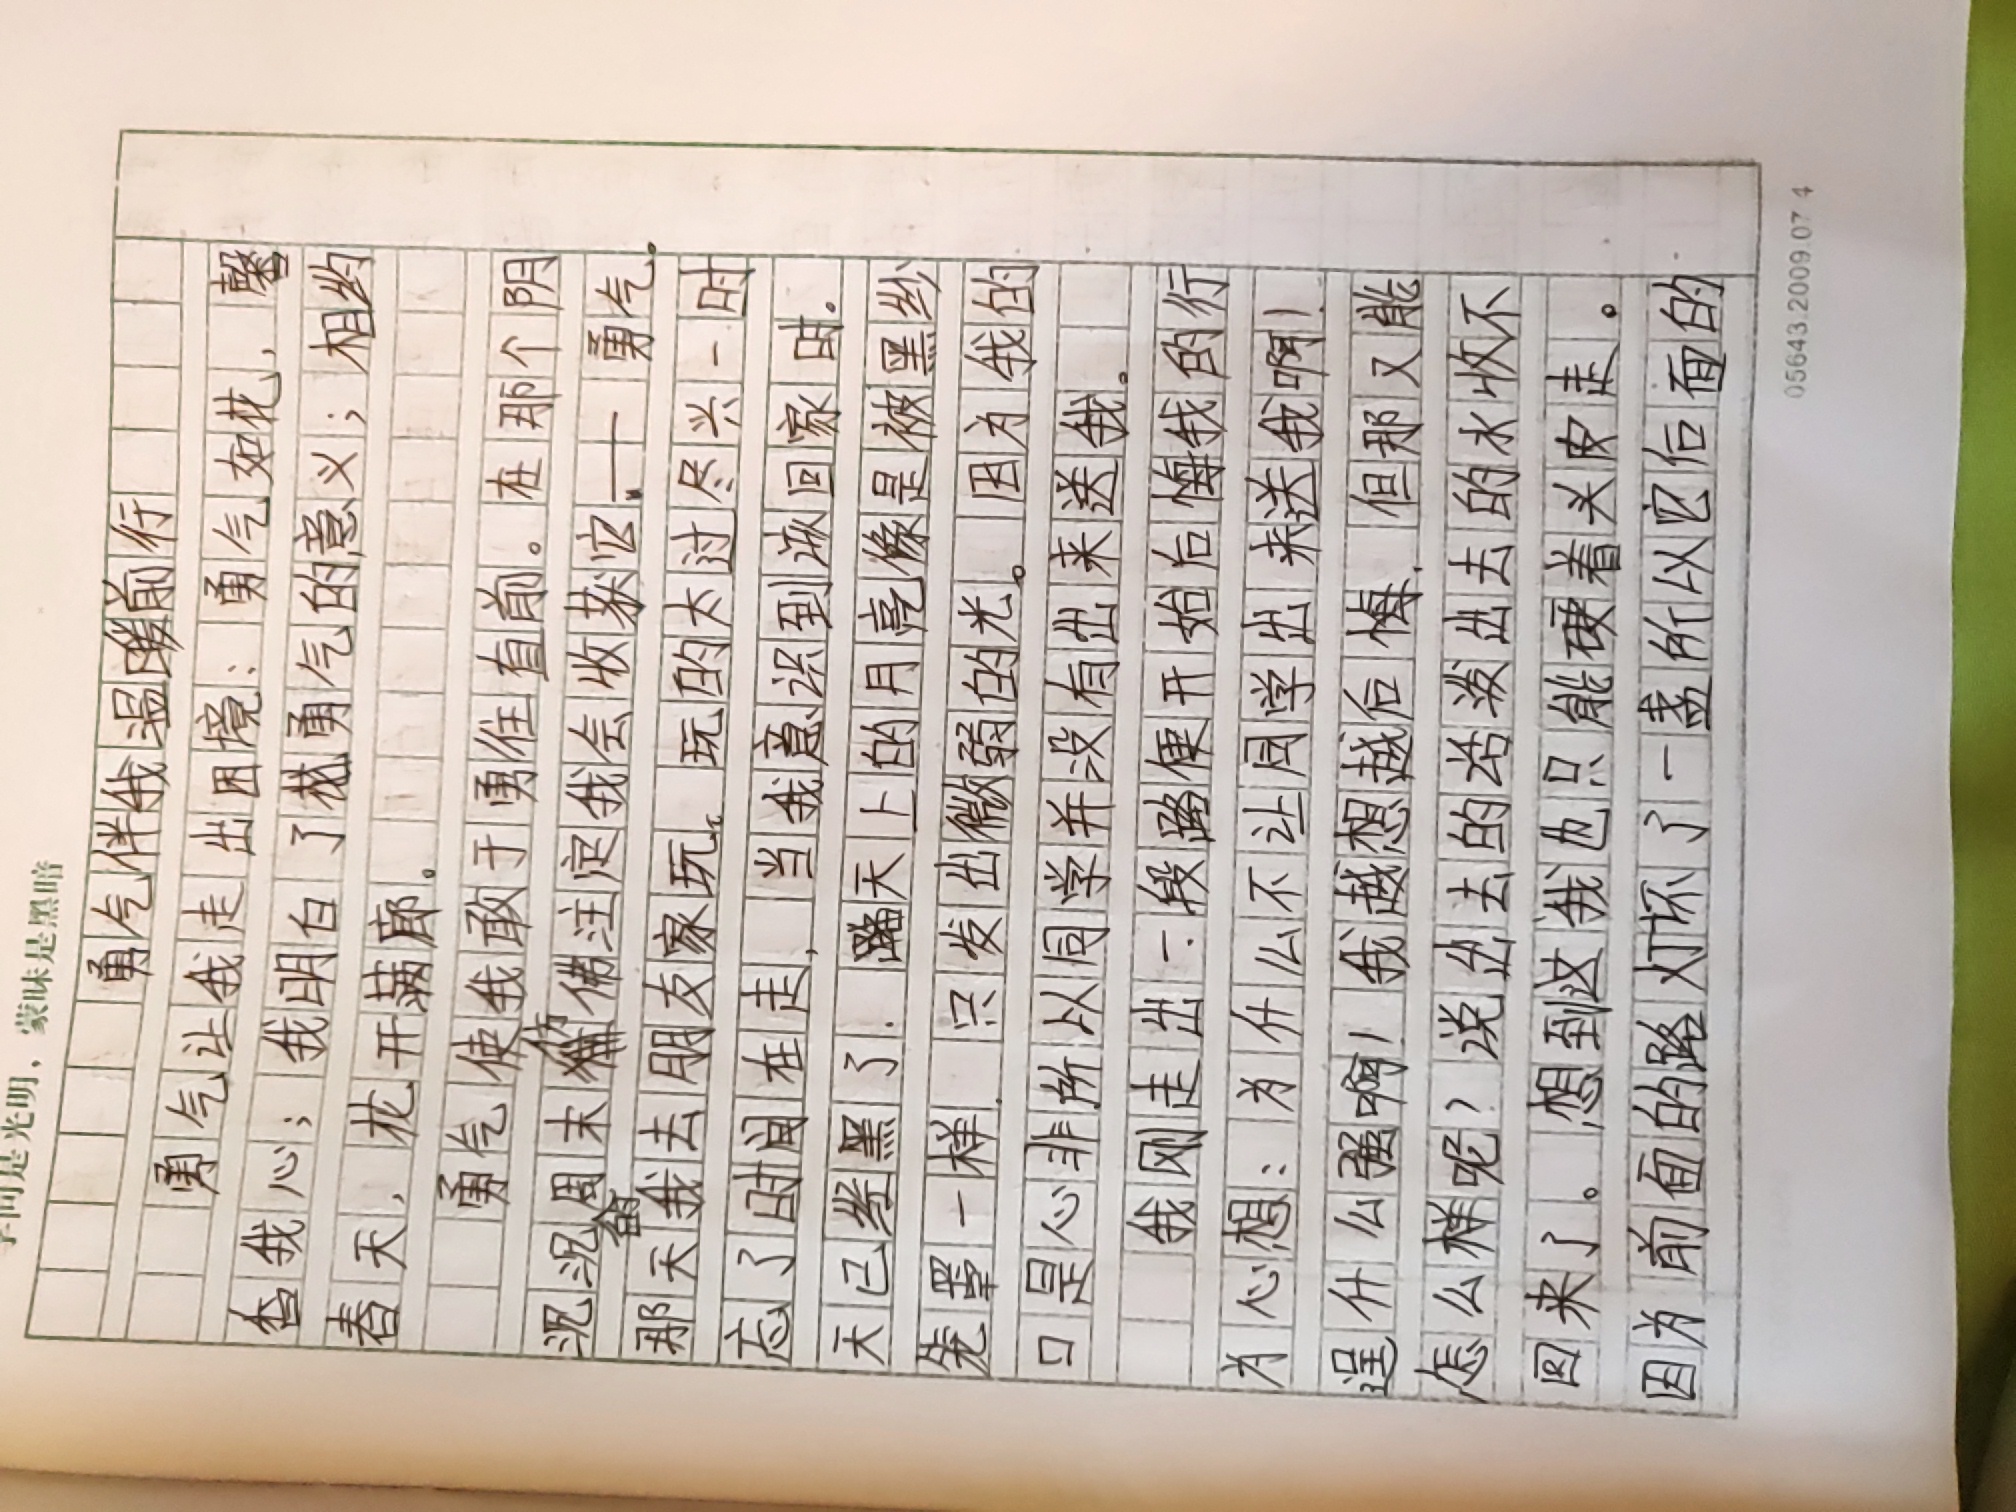 学问是光明，蒙昧是黑暗
勇气伴我温暖前行
勇气让我走出困境：勇气如花，馨
香我心；我明白了花勇气的意义；相约
春天，花开满廊。
勇气使我敢于勇往直前。在那个阴
沉沉周末仿佛注定我会收获它——勇气。
那天我去朋友家玩。玩的太过尽兴一时
忘了时间在走，当我意识到该回家时。
天已经黑了．路天上的月亮像是被黑纱
笼罩一样．只发出微弱的光。因为我的
口是心非所以同学并没有出来送我。
我刚走出一段路便开始后悔我的行
为心想：为什么不让同学出来送我啊！
逞什么强啊！我越想越后悔．但那又能
怎么样呢？说出去的话泼出去的水收不
回来了。想到这我也只能硬着头皮走。
因为前面的路灯坏了一盏所以它后面的
05643.2009.07 4